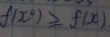 f(x²) ≥ f(x)